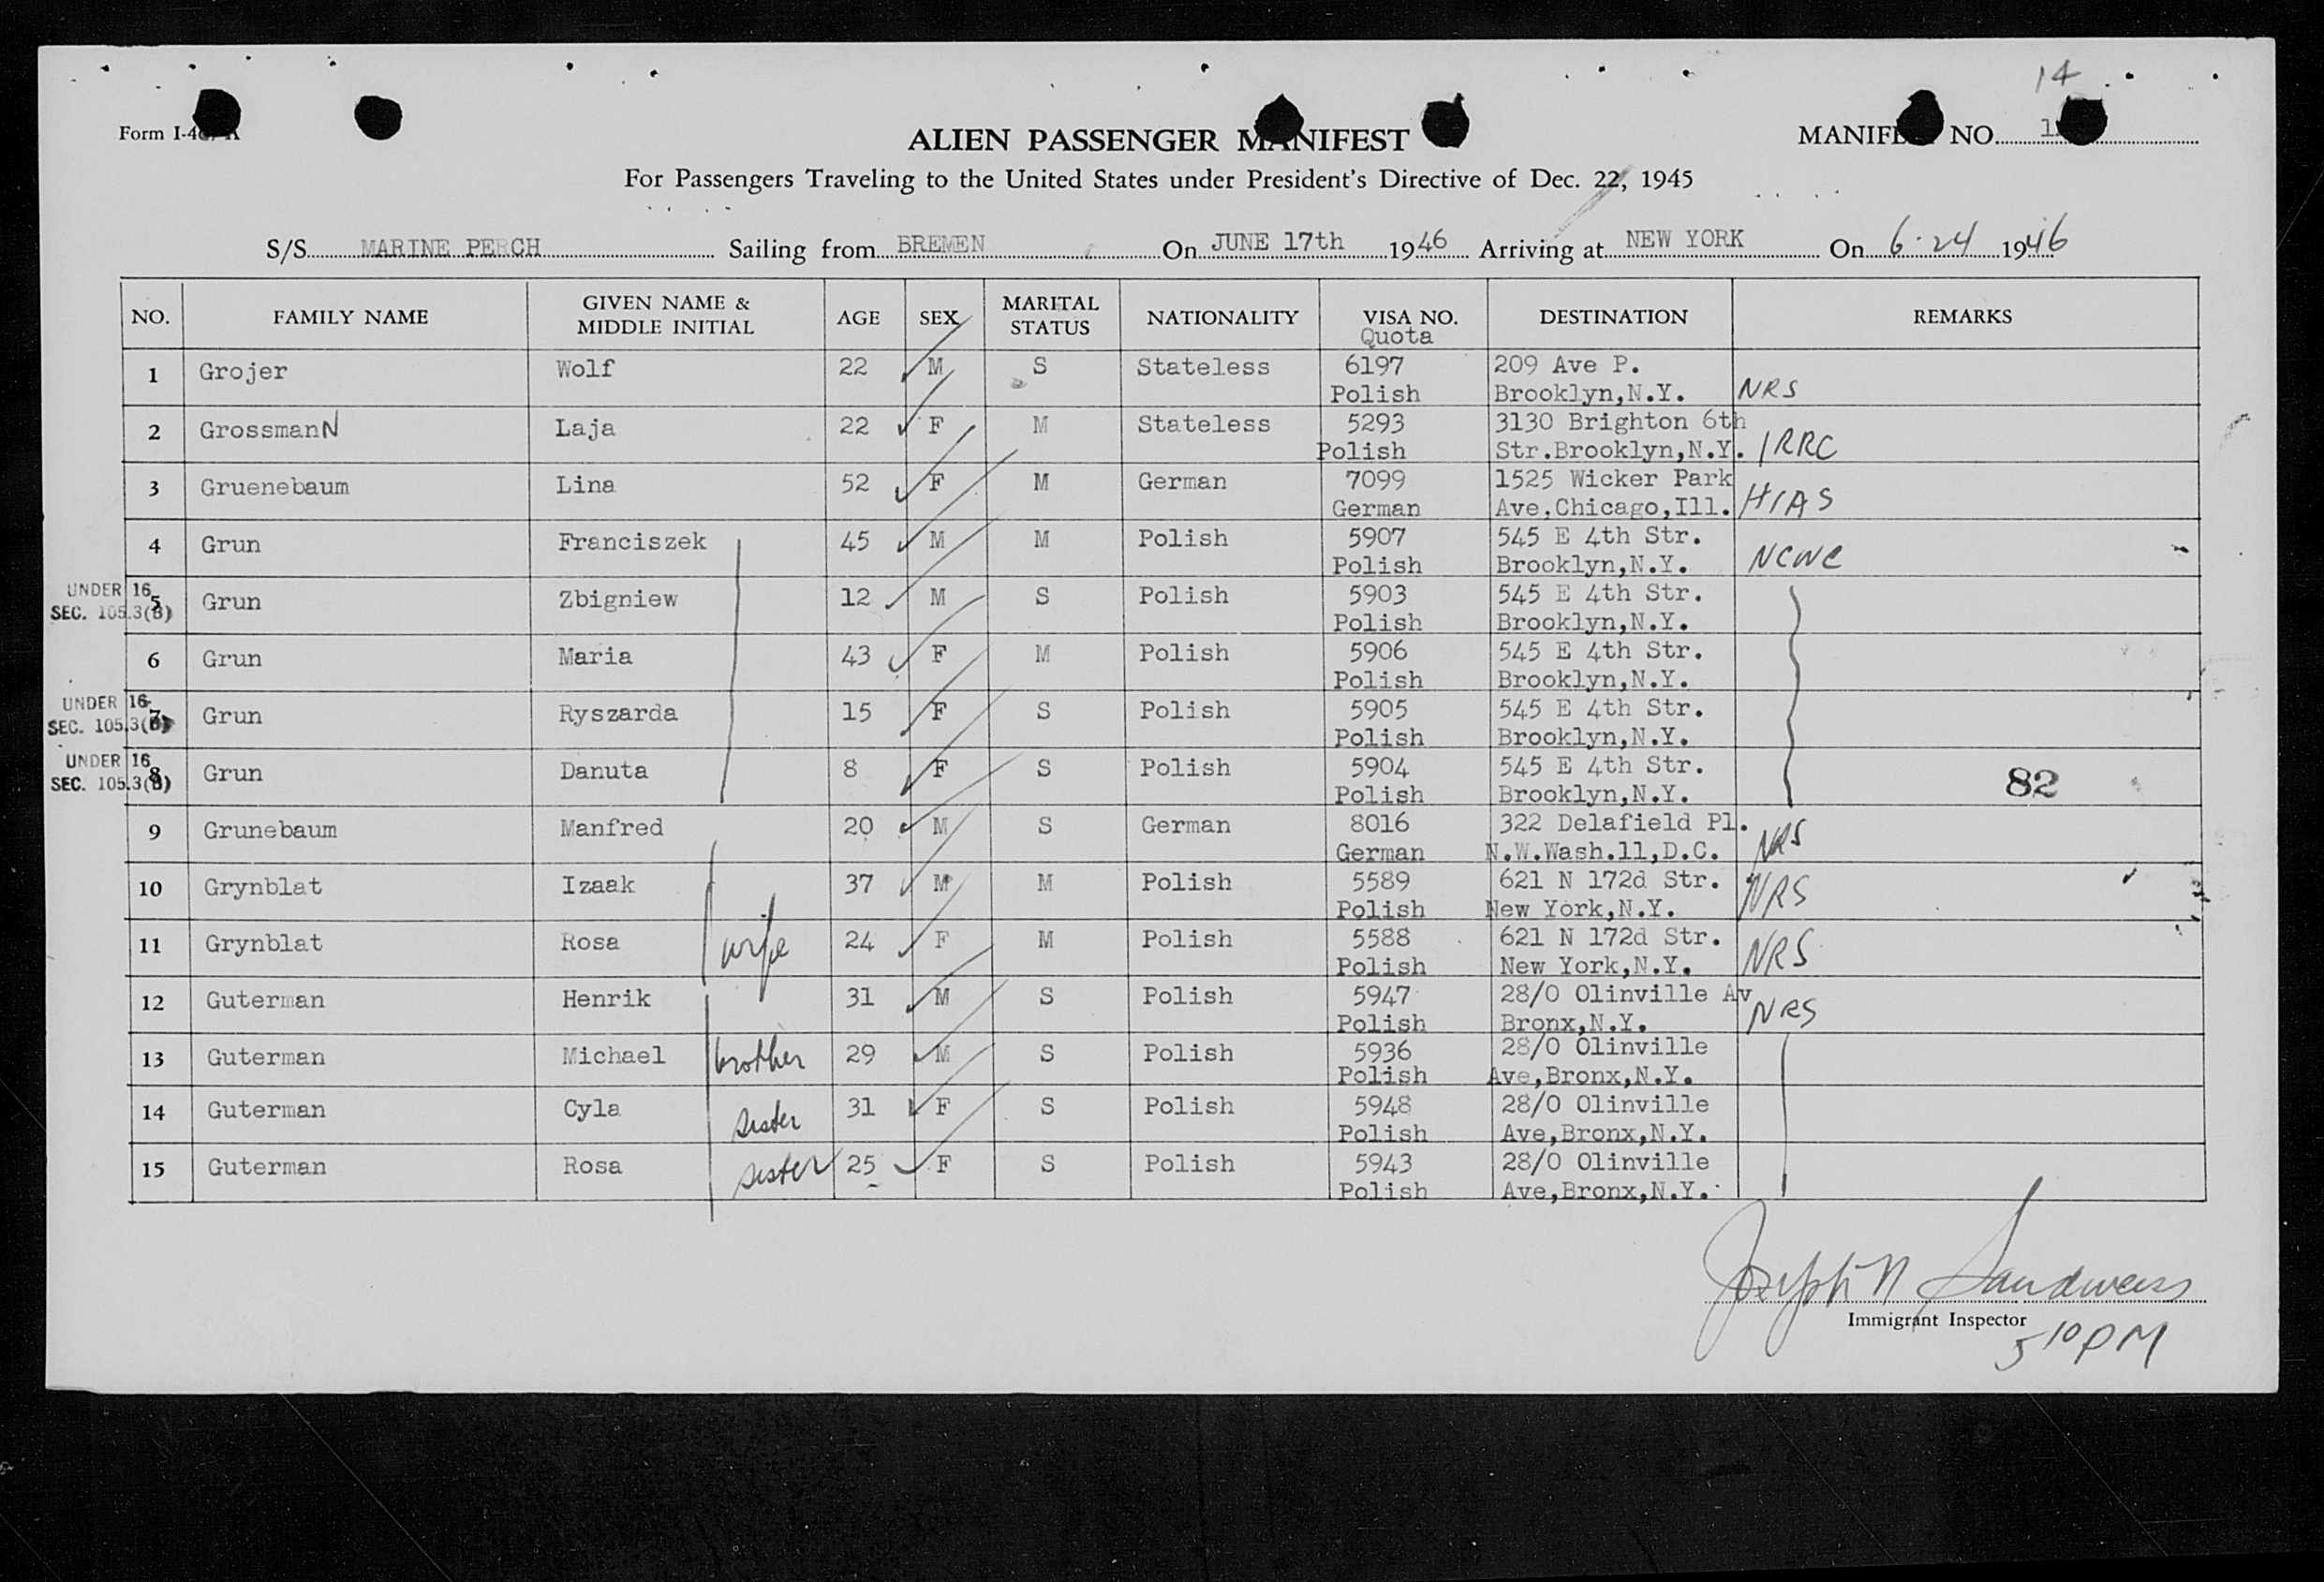 14
Form I-4
ALIEN PASSENGER MANIFEST
MANIFEST NO.
For Passengers Traveling to the United States under President's Directive of Dec. 22, 1945
S/S MARINE PERCH Sailing from BREMEN On JUNE 17th 1946 Arriving at NEW YORK On 6-24 1946
NO. FAMILY NAME GIVEN NAME & MIDDLE INITIAL AGE SEX MARITAL STATUS NATIONALITY VISA NO. Quota DESTINATION REMARKS
1 Grojer Wolf 22 M S Stateless 6197 209 Ave P.
Polish Brooklyn,N.Y. NRS
2 GrossmanN Laja 22 F M Stateless 5293 3130 Brighton 6th
Polish Str.Brooklyn,N.Y. IRRC
3 Gruenebaum Lina 52 F M German 7099 1525 Wicker Park
German Ave,Chicago,Ill. HIAS
4 Grun Franciszek 45 M M Polish 5907 545 E 4th Str.
Polish Brooklyn,N.Y. NCWC
UNDER 16
SEC. 105.3(B)
5 Grun Zbigniew 12 M S Polish 5903 545 E 4th Str.
Polish Brooklyn,N.Y.
6 Grun Maria 43 F M Polish 5906 545 E 4th Str.
Polish Brooklyn,N.Y.
UNDER 16
SEC. 105.3(B)
7 Grun Ryszarda 15 F S Polish 5905 545 E 4th Str.
Polish Brooklyn,N.Y.
UNDER 16
SEC. 105.3(B)
8 Grun Danuta 8 F S Polish 5904 545 E 4th Str.
Polish Brooklyn,N.Y. 82
9 Grunebaum Manfred 20 M S German 8016 322 Delafield Pl.
German N.W.Wash.11,D.C. NRS
10 Grynblat Izaak 37 M M Polish 5589 621 N 172d Str.
Polish New York,N.Y. NRS
11 Grynblat Rosa wife 24 F M Polish 5588 621 N 172d Str.
Polish New York,N.Y. NRS
12 Guterman Henrik 31 M S Polish 5947 28/0 Olinville Av
Polish Bronx,N.Y. NRS
13 Guterman Michael brother 29 M S Polish 5936 28/0 Olinville
Polish Ave,Bronx,N.Y.
14 Guterman Cyla sister 31 F S Polish 5948 28/0 Olinville
Polish Ave,Bronx,N.Y.
15 Guterman Rosa sister 25 F S Polish 5943 28/0 Olinville
Polish Ave,Bronx,N.Y.
Joseph N Sandweiss
Immigrant Inspector
5 10 PM